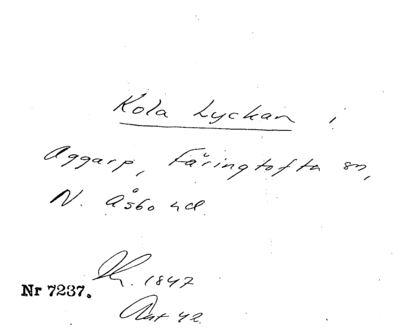 Kola Lyckan i
Aggarp, Färingtofta sn,
N. Åsbo hd.
1847
Nr 7237.